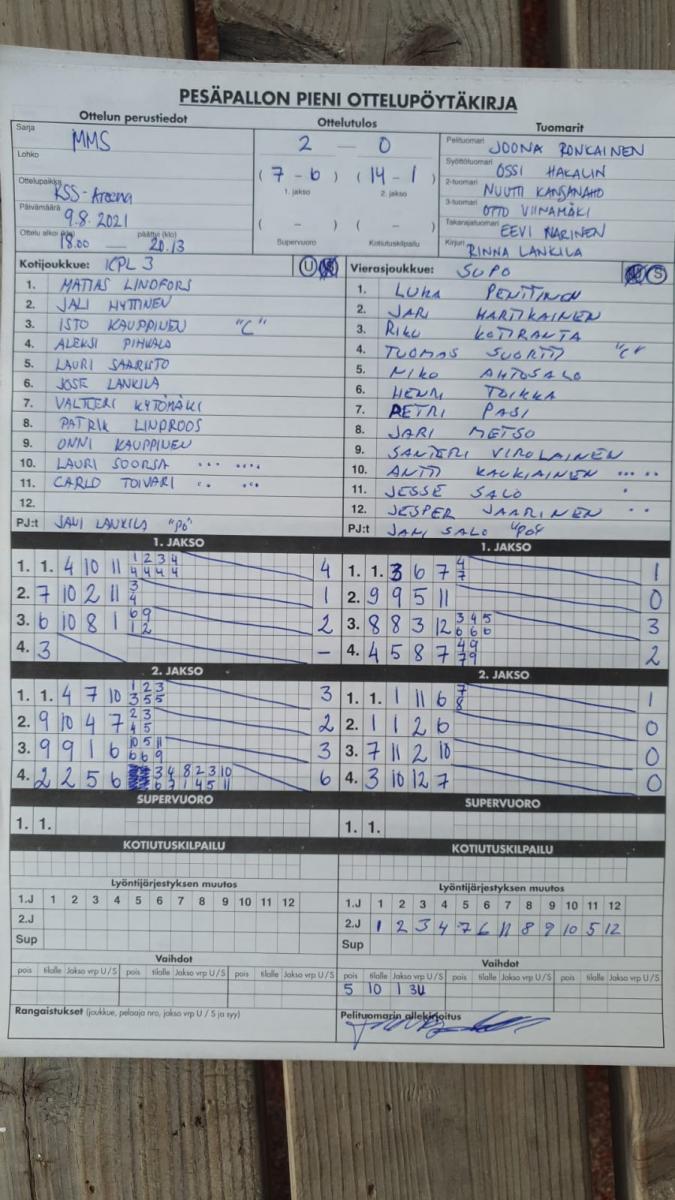 PESÄPALLON PIENI OTTELUPÖYTÄKIRJA
Ottelun perustiedot Ottelutulos Tuomarit
Sarja MMS 2 — 0 Pelituomari JOONA RONKAINEN
Lohko (7 - 6) (14 - 1) Syöttötuomari OSSI HAKALIN
1. jakso 2. jakso
Ottelupaikka KSS-Areena 2-tuomari NUUTTI KANSANAHO
Päivämäärä 9.8.2021 ( - ) ( - ) 3-tuomari OTTO VIINAMÄKI
Ottelu alkoi (klo) 18.00 päättyi (klo) 20.13 Takarajatuomari EEVI NARINEN
Supervuoro Kotiutuskilpailu Kirjuri RINNA LANKILA
Kotijoukkue: KPL 3 U S
1. MATIAS LINDFORS
2. JALI HYTTINEN
3. ISTO KAUPPINEN "C"
4. ALEKSI PIHKALA
5. LAURI SAARISTO
6. JOSE LANKILA
7. VALTTERI KYTÖMÄKI
8. PATRIK LINDROOS
9. ONNI KAUPPINEN
10. LAURI SOORSA ... ....
11. CARLO TOIVARI .. ..
12.
PJ:t JANI LANKILA "PÖ"
Vierasjoukkue: SUPO U S
1. LUKA PENTTINEN
2. JARI HARTIKAINEN
3. RIKU KOTIRANTA
4. TUOMAS SUORTTI "C"
5. NIKO AHTOSALO
6. HENRI TOIKKA
7. PETRI PASI
8. JARI METSO
9. SANTERI VIROLAINEN
10. ANTTI KAUKIAINEN ... ..
11. JESSE SALO .
12. JESPER JAARINEN ..
PJ:t JANI SALO "PÖ"
1. JAKSO
1. 1. 4 10 11 1 2 3 4 4
4 4 4 4
2. 7 10 2 11 3 1
4
3. 6 10 8 1 6 9 2
1 2
4. 3 –
1. JAKSO
1. 1. 3 6 7 4 1
7
2. 9 9 5 11 0
3. 8 8 3 12 3 4 5 3
6 6 6
4. 4 5 8 7 4 9 2
7 9
2. JAKSO
1. 1. 4 7 10 1 2 3 3
3 5 5
2. 9 10 4 7 2 3 2
4 5
3. 9 9 1 6 10 5 11 3
6 6 9
4. 2 2 5 6 3 4 8 2 3 10 6
6 7 1 4 5 11
2. JAKSO
1. 1. 1 11 6 7 1
8
2. 1 1 2 6 0
3. 7 11 2 10 0
4. 3 10 12 7 0
SUPERVUORO SUPERVUORO
1. 1. 1. 1.
KOTIUTUSKILPAILU KOTIUTUSKILPAILU
Lyöntijärjestyksen muutos Lyöntijärjestyksen muutos
1.J 1 2 3 4 5 6 7 8 9 10 11 12 1.J 1 2 3 4 5 6 7 8 9 10 11 12
2.J 2.J 1 2 3 4 7 6 11 8 9 10 5 12
Sup Sup
Vaihdot Vaihdot
pois tilalle Jakso vrp U / S pois tilalle Jakso vrp U / S pois tilalle Jakso vrp U / S pois tilalle Jakso vrp U / S pois tilalle Jakso vrp U / S pois tilalle Jakso vrp U / S
5 10 1 3U
Rangaistukset (joukkue, pelaaja nro, jakso vrp U / S ja syy) Pelituomarin allekirjoitus